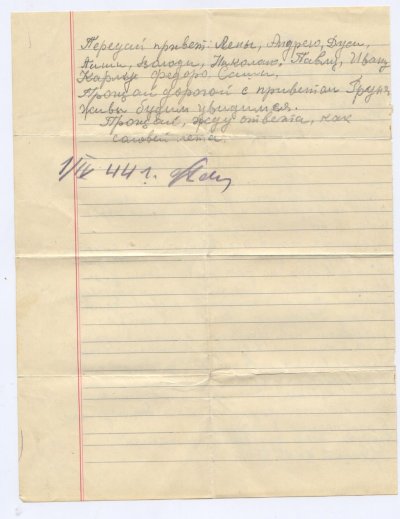 Передай привет: Лены, Андрею, Дуси,
Володи, Николаю, Павлу, Ивану
Карлу Федоро. Саши.
Прощай дорогой с приветом Друг.
Живы будим увидимся.
Прощай, жду ответа, как
соловей лета.
1/IV 44 г.